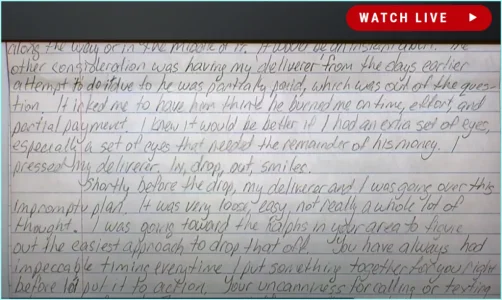 WATCH LIVE
along the way or in the middle of it. It would be an instant The
other consideration was having my deliverer from the days earlier
attempt to do it due to he was partially paid, which was out of the ques-
tion. It irked me to have him think he burned me on time, effort, and
partial payment. I knew it would be better if I had an extra set of eyes,
especially a set of eyes that needed the remainder of his money. I
pressed my deliverer. In, drop, out, smiles.
Shortly before the drop, my deliverer and I was going over this
impromptu plan. It was very loose, easy, not really a whole lot of
thought. I was going toward the Ralphs in your area to figure
out the easiest approach to drop that off. You have always had
impeccable timing everytime I put something together for you right
before I put it to action. Your uncanniness for calling or texting